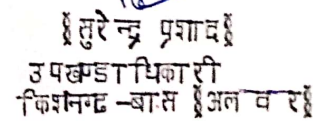 (सुरेन्द्र प्रशाद)
उपखण्डाधिकारी
किशनगढ-बास (अलवर)